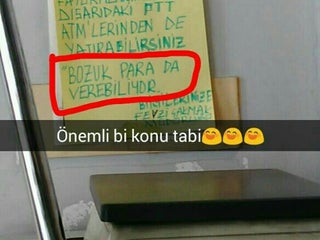 DIŞARIDAKİ PTT
ATM'LERİNDEN DE
YATIRABİLİRSİNİZ
"BOZUK PARA DA
VEREBİLİYOR
Önemli bi konu tabi😄😄😄